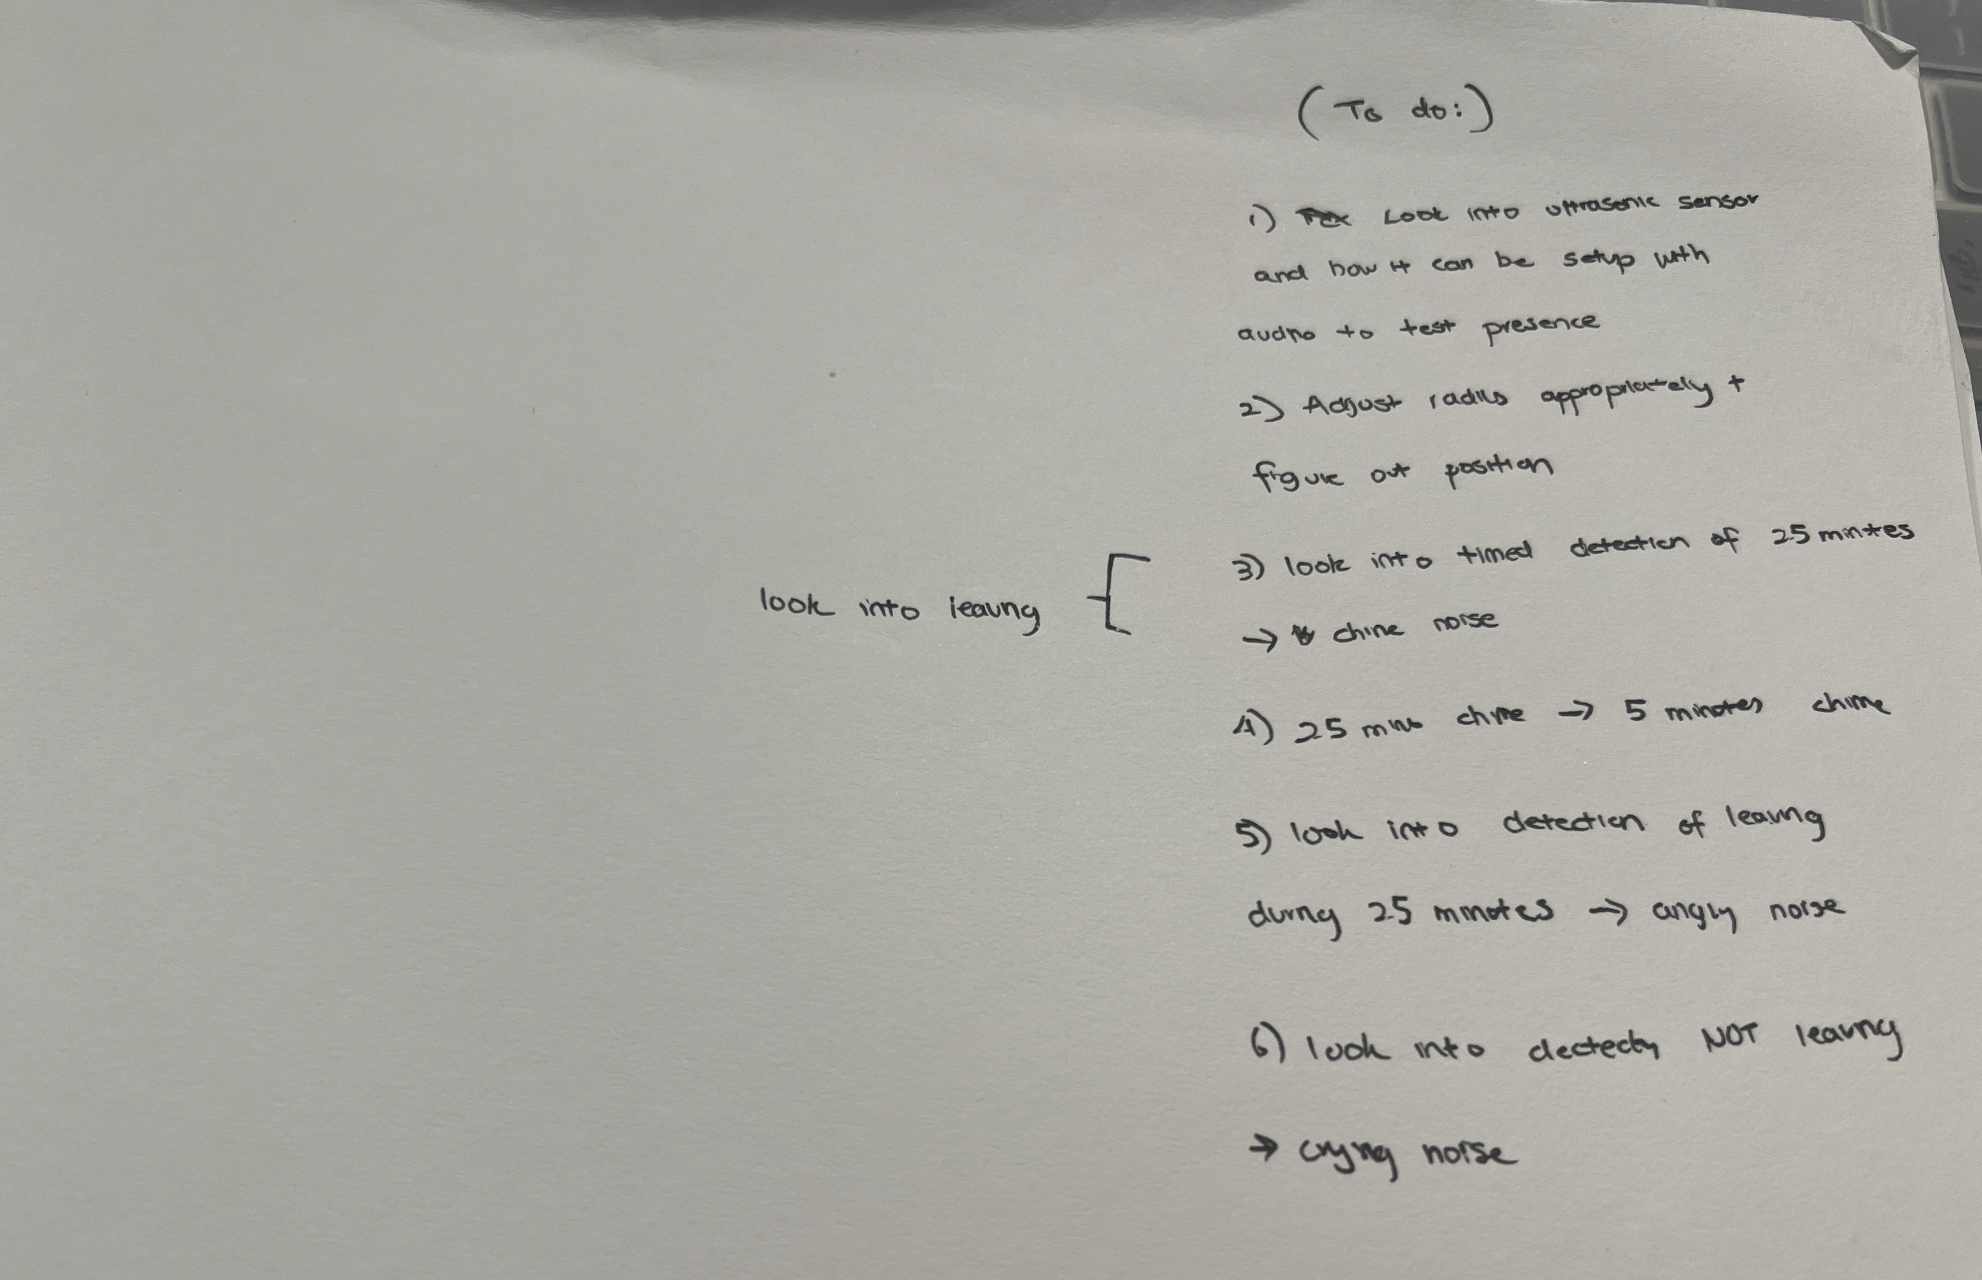 (To do:)
1) Look into ultrasonic sensor
and how it can be setup with
audio to test presence
2) Adjust radius appropriately +
figure out position
look into leaving
3) look into timed detection of 25 minutes
→ chime noise
4) 25 mins chime → 5 minutes chime
5) look into detection of leaving
during 25 minutes → angry noise
6) look into dectecting NOT leaving
→ crying noise